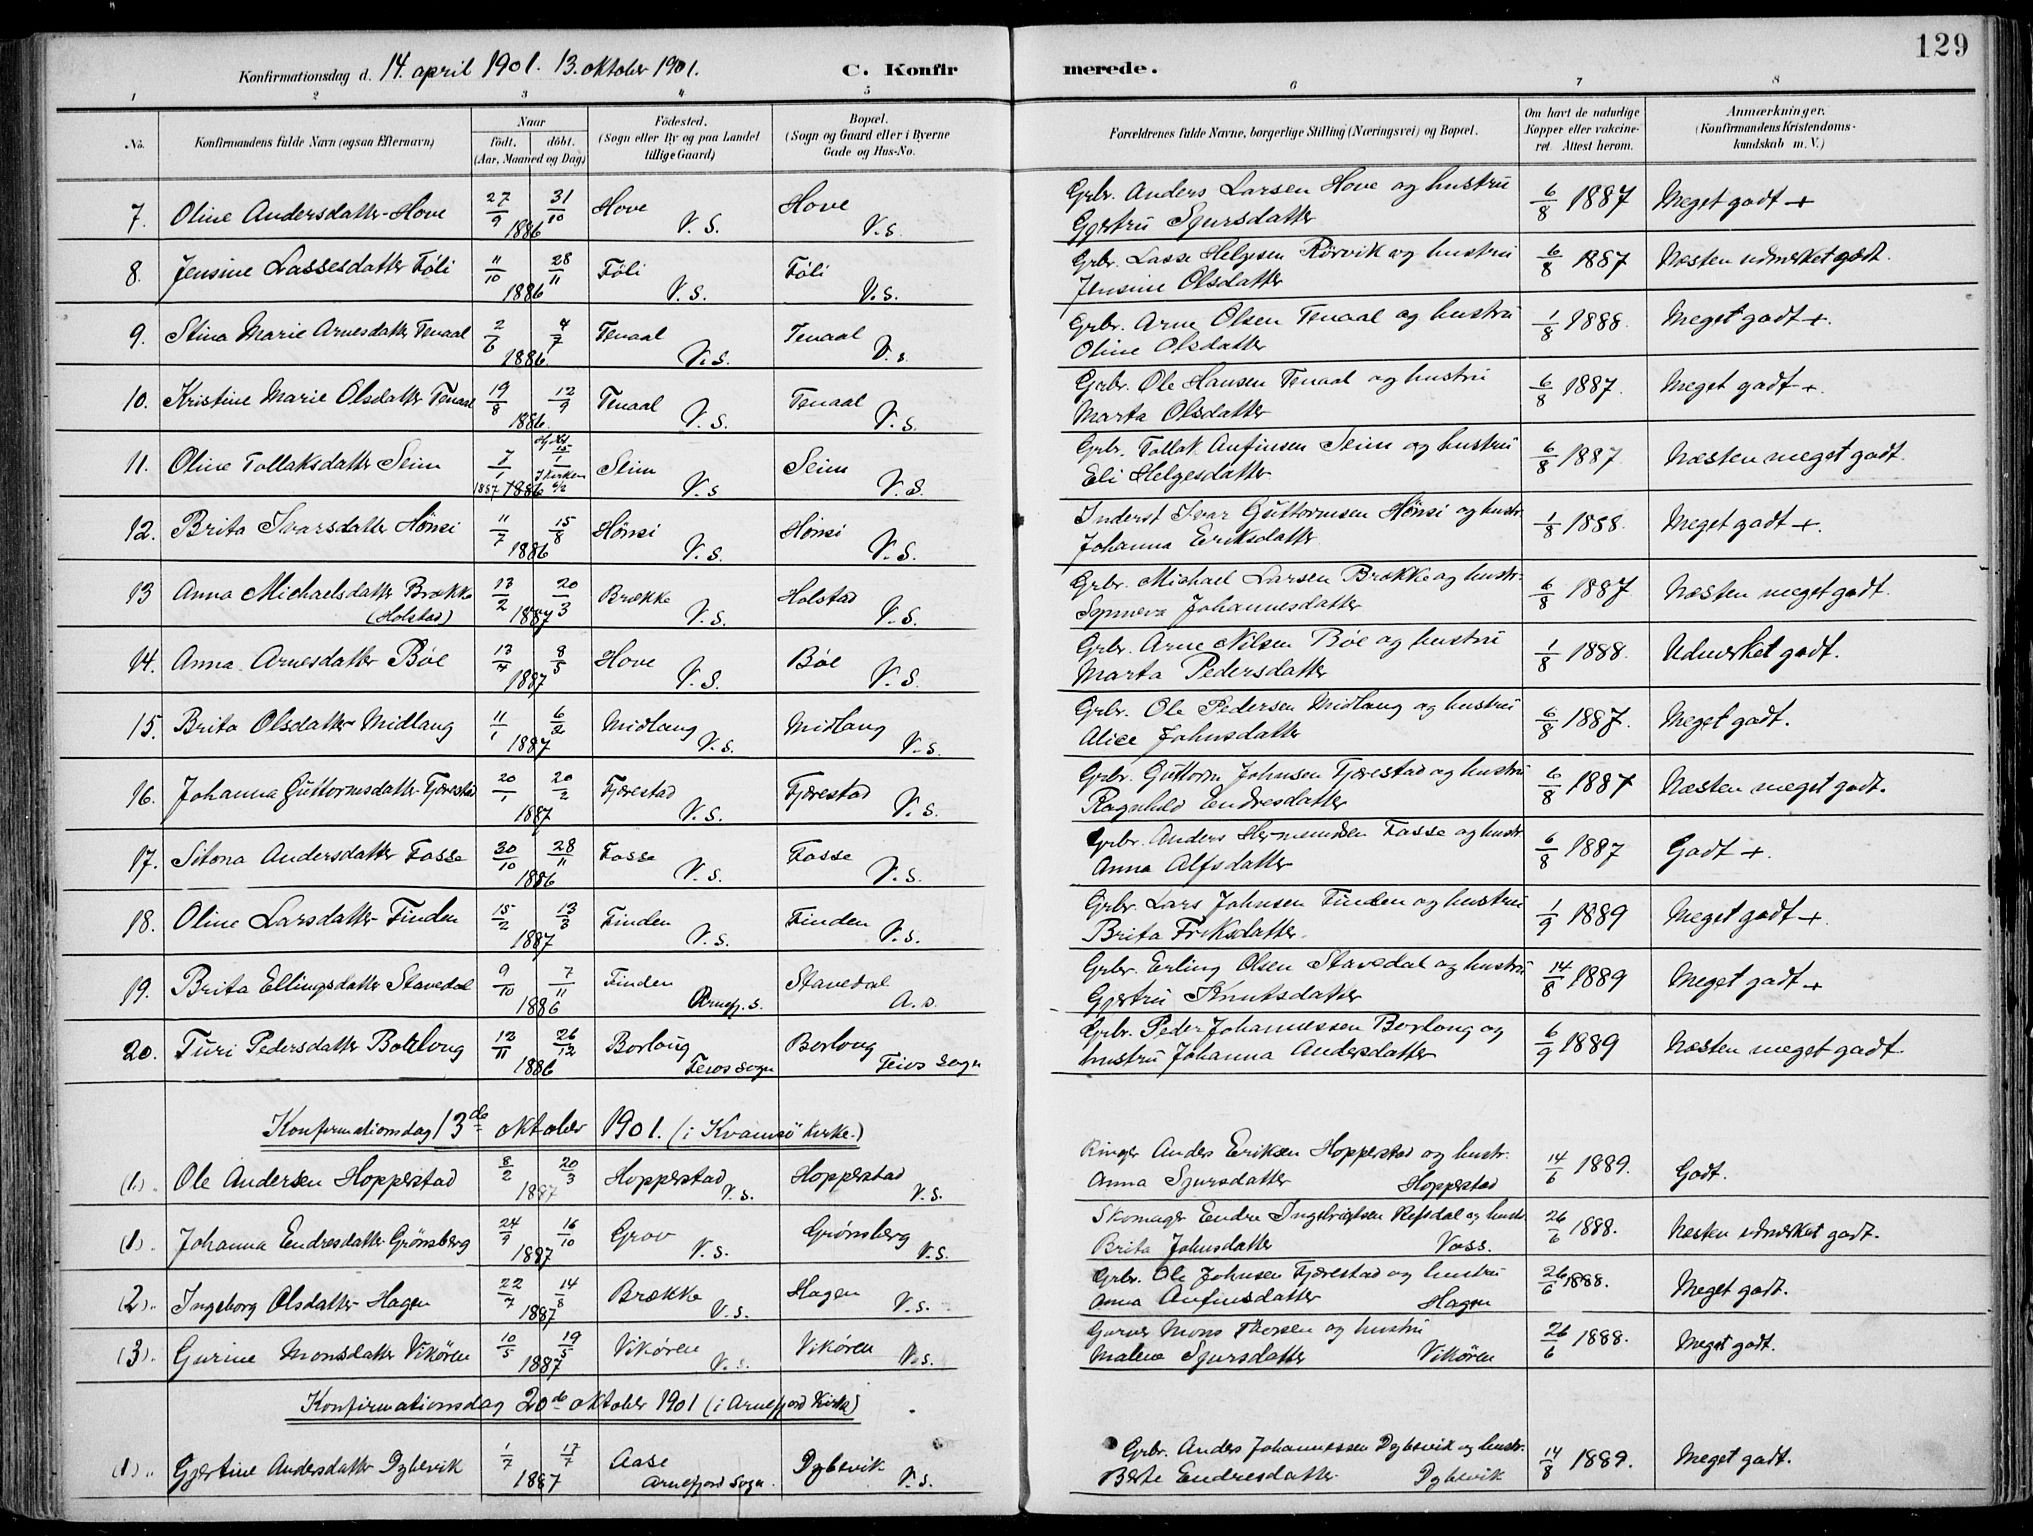 129
Konfirmationsdag d. 14. april 1901. 13. oktober 1901. C. Konfirmerede.
1 2 3 4 5 6 7 8
No. Konfirmandens fulde Navn (ogsaa Efternavn) Naar födt. döbt. (Aar, Maaned og Dag) Födested. (Sogn eller By og paa Landet tillige Gaard) Bopæl. (Sogn og Gaard eller i Byerne Gade og Hus-No. Forældrenes fulde Navne, borgerlige Stilling (Næringsvei) og Bopæl. Om havt de naturlige Kopper eller vakcineret. Attest herom. Anmærkninger. (Konfirmandens Kristendomskundskab m. V.)
7. Oline Andersdatter Hove 27/9 31/10 1886 Hove V. S. Hove V. S. Grbr. Anders Larsen Hove og hustru Gjertru Sjursdatter 6/8 1887 Meget godt +
8. Jensine Lassesdatter Føli 11/10 28/11 1886 Føli V. S. Føli V. S. Grbr. Lasse Helgesen Rörvik og hustru Jensine Olsdatter 6/8 1887 Næsten udmerket godt.
9. Stina Marie Arnesdatter Tenaal 2/6 4/7 1886 Tenaal V. S. Tenaal V. s. Grbr. Arne Olsen Tenaal og hustru Oline Olsdatter 1/8 1888. Meget godt +.
10. Kristine Marie Olsdatter Tenaal 19/8 12/9 1886. Tenaal V. S. Tenaal V. S. Grbr. Ole Hansen Tenaal og hustru Marta Olsdatter 6/8 1887. Meget godt +.
11. Oline Tollaksdatter Seim 7/1 1887 15/1 Seim V. s Seim V. S. Grbr. Tollak Anfinsen Seim og hustru Eli Helgesdatter 6/8 1887 Næsten meget godt.
12. Brita Ivarsdatter Hønsi 11/7 15/8 1886 Hønsi V. S. Hønsi V. S. Inderst Ivar Guttormsen Hønsi og hustr. Johanna Eriksdatter 1/8 1888. Meget godt +.
13 Anna Michaelsdatter Brække (Holstad) 13/2 20/3 1887 Brække V. S. Holstad V. S. Grbr. Michael Larsen Brække og hustr. Synneva Johannesdatter 6/8 1887 Næsten meget godt.
14. Anna Arnesdatter Böe 13/4 8/5 1887 Hove V. S. Böe V. S. Grbr. Arne Nilsen Böe og hustru Marta Pedersdatter 1/8 1888. Udmerket godt.
15. Brita Olsdatter Midlang 11/1 6/2 1887 Midlang V. S. Midlang V. S. Grbr. Ole Pedersen Midlang og hustru Alice Johnsdatter 6/8 1887. Meget godt.
16. Johanna Guttormsdatter Fjærestad 20/1 20/2 1887 Fjærestad V. S. Fjærestad V. S. Grbr. Guttorm Johnsen Fjærestad og hustru Ragnhild Endresdatter 6/8 1887 Næsten meget godt.
17. Sitona Andersdatter Fosse 30/10 28/11 1886 Fosse V. S. Fosse V. S. Grbr. Anders Hermundsen Fosse og hustr Anna Alfsdatter 6/8 1887 Godt +.
18. Oline Larsdatter Finden 15/2 13/3 1887 Finden V. S. Finden V. S. Grbr. Lars Johnsen Finden og hustru Brita Eriksdatter. 1/9 1889 Meget godt +
19. Brita Ellingsdatter Stavedal 9/10 7/11 1886 Finden Arnefj. S. Stavedal A. S. Grbr. Erling Olsen Stavedal og hustru Gjertru Knutsdatter 14/8 1889 Meget godt +
20. Turi Pedersdatter Borloug 12/11 26/12 1886 Borloug Feios sogn Borloug Feios sogn Grbr. Peder Johannessen Borloug og hustru Johanna Andersdatter 6/9 1889 Næsten meget godt
Konfirmationsdag 13de oktober 1901. (i Kvamsö Kirke.)
(1.) Ole Andersen Hopperstad 8/2 20/3 1887 Hopperstad V. S. Hopperstad V. S. Ringer Anders Eriksen Hopperstad og hustr. Anna Sjursdatter Hopperstad 14/6 1889. Godt.
(1). Johanna Endresdatter Grönsberg 24/9 16/10 1887 Grov V. S. Grønsberg V. S. Skomager Endre Ingebrigtsen Refsdal og hustr Brita Johnsdatter Voss. 26/6 1888. Næsten udmerket godt.
(2).. Ingeborg Olsdatter Hagen 22/7 14/8 1887 Brække V. S. Hagen V. S. Grbr. Ole Johnsen Fjærestad og hustru Anna Anfinsdatter Hagen 26/6 1888. Meget godt.
(3). Gurine Monsdatter Vikören 10/5 19/5 1887 Vikören V. S. Vikören V. S. Garver Mons Thorsen og hustru Malena Sjursdatter Vikören 26/6 1888. Meget godt.
Konfirmationsdag 20de oktober 1901 (i Arnefjord Kirke)
(1).. Gjertine Andersdatter Dybevik 1/7 17/7 1887 Aase Arnefjord Sogn. Dybevik V. S. Grbr. Anders Johannessen Dybevik og hustr. Berte Endresdatter Dybevik 14/8 1889. Meget godt.